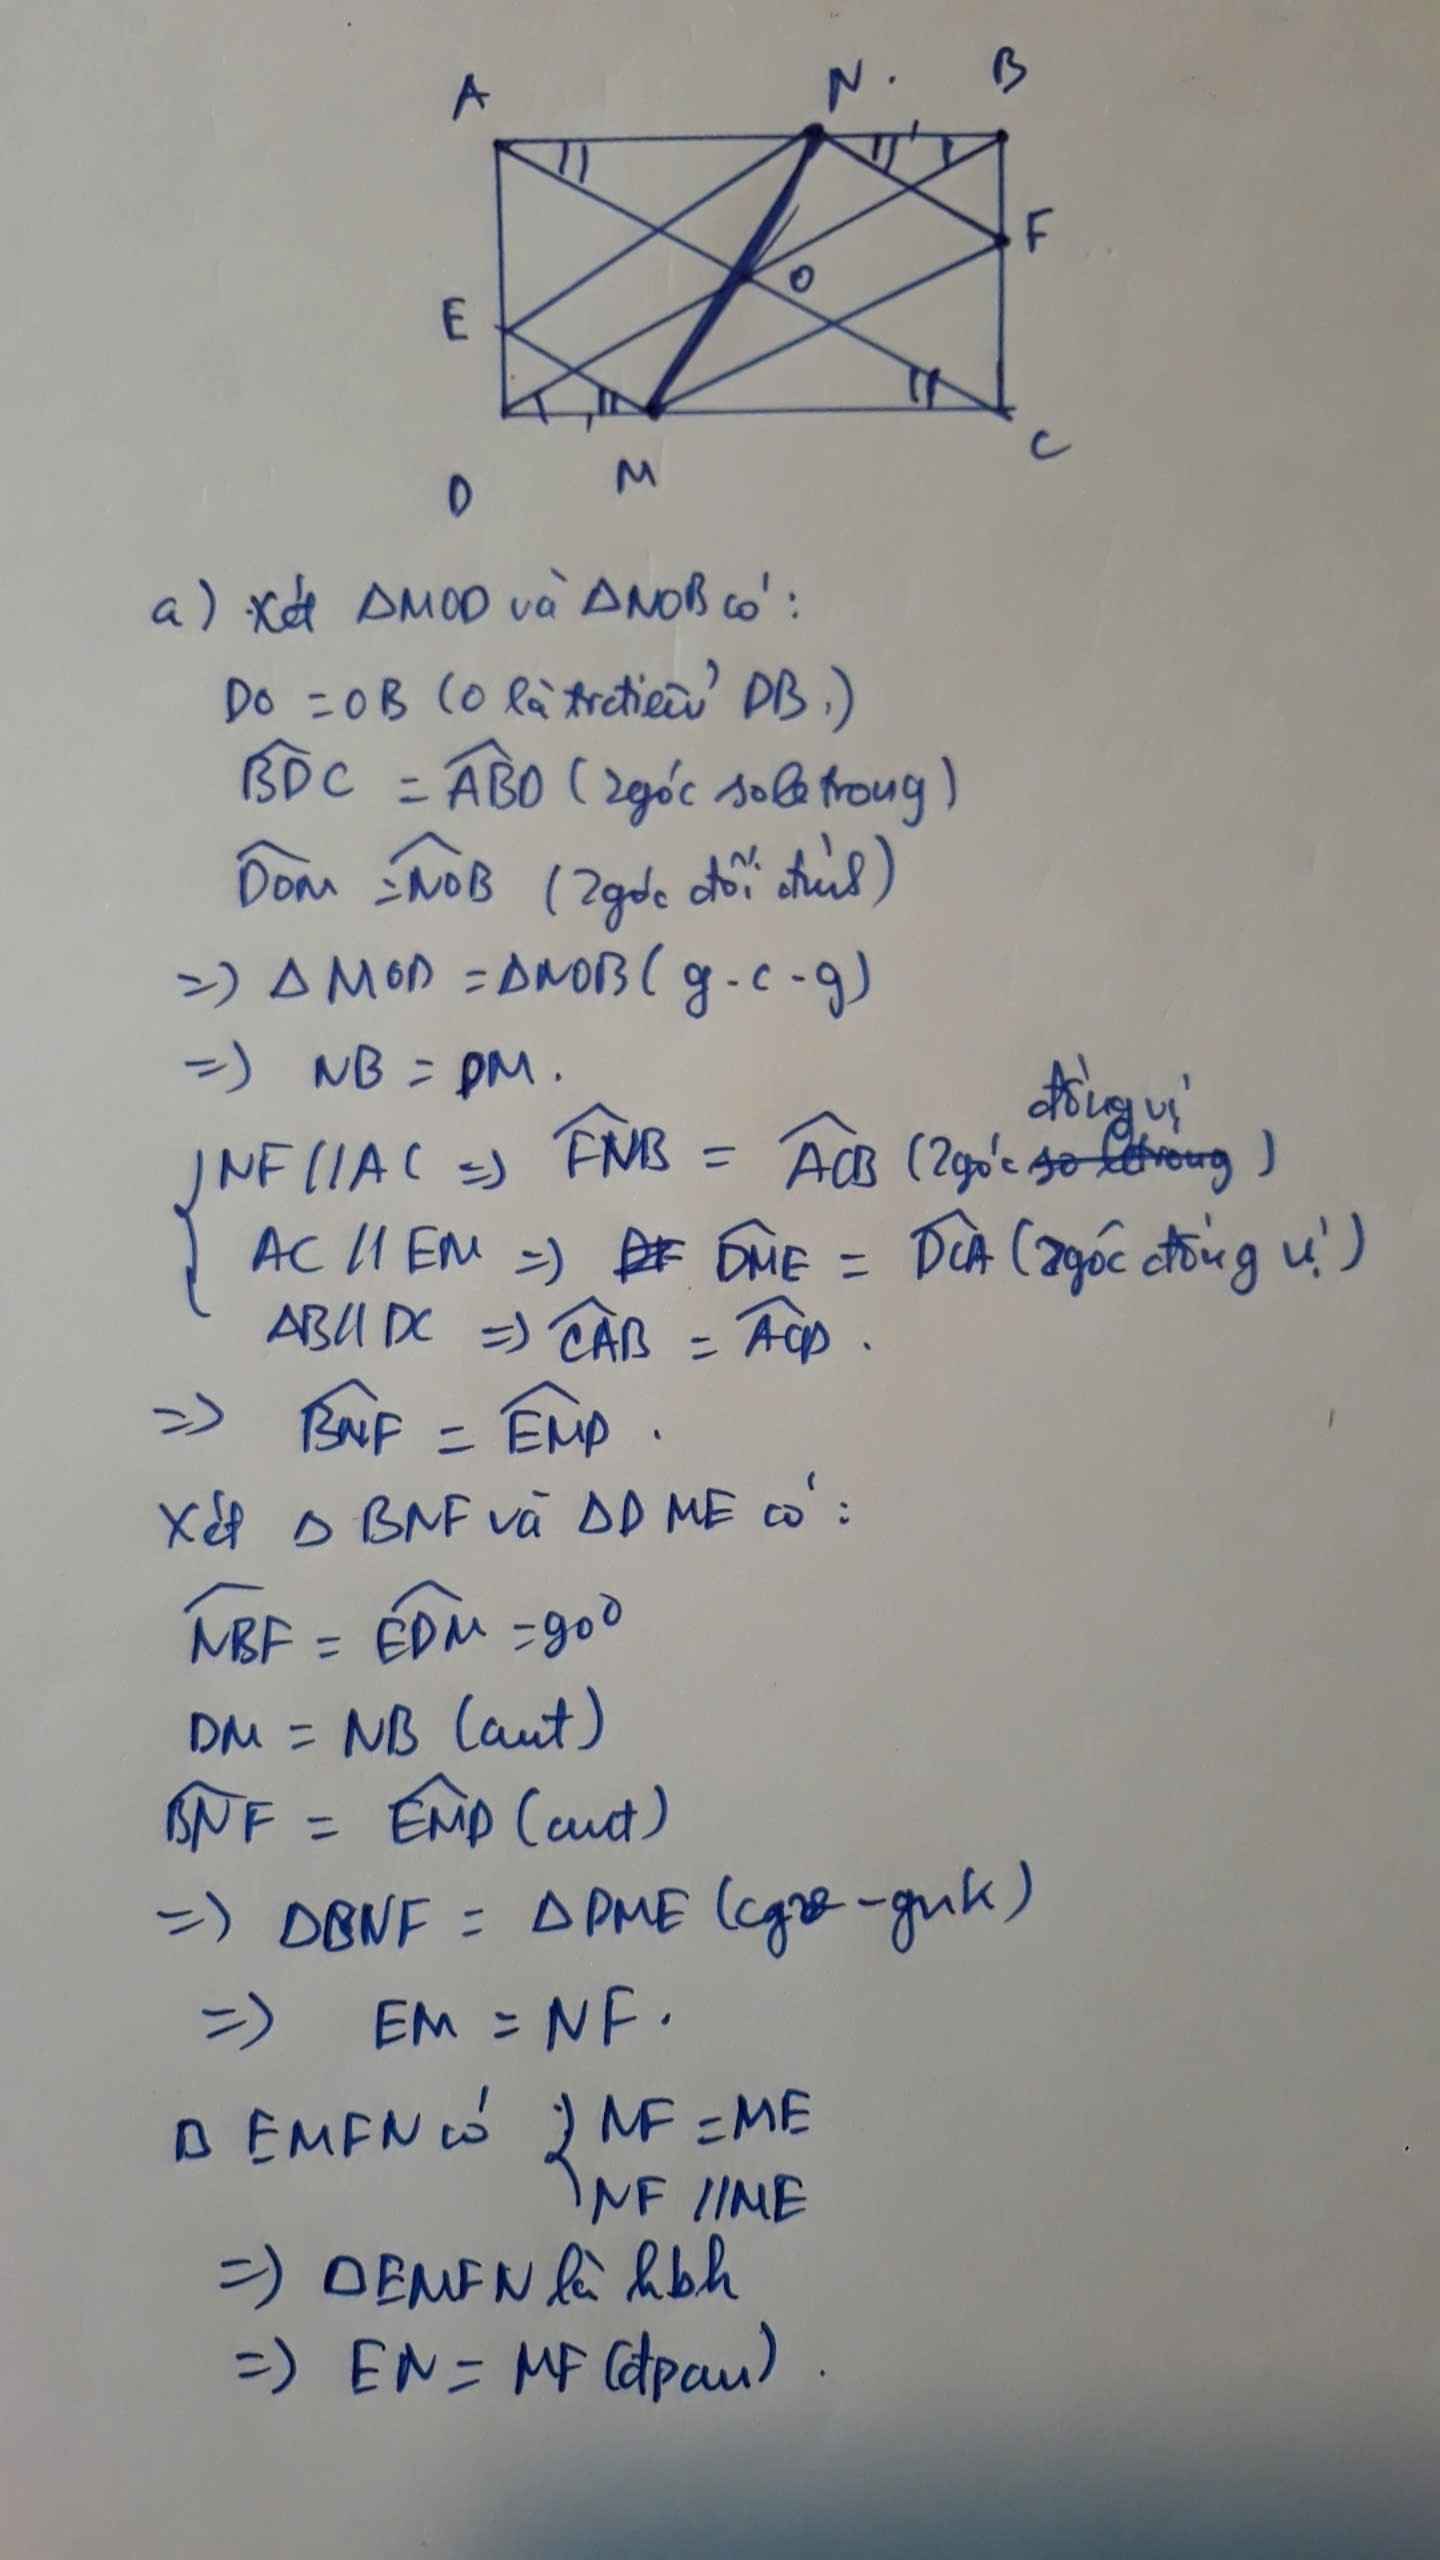 A N. B
F
O
E
C
M
D
a) Xét ΔMOD và ΔNOB có:
DO = OB (O là trđiểm DB.)
BDC = ABD (2 góc so le trong)
DOM = NOB (2 góc đối đỉnh)
=> ΔMOD = ΔNOB (g-c-g)
=> NB = DM.
đồng vị
NF // AC => FNB = ACB (2 góc so le trong)
AC // EM => DME = DCA (2 góc đồng vị)
AB // DC => CAB = ACD.
=> BNF = EMD.
Xét Δ BNF và ΔDME có:
NBF = EDM = 90°
DM = NB (cmt)
BNF = EMD (cmt)
=> ΔBNF = ΔDME (cgv-gnk)
=> EM = NF.
EMFN có { NF = ME
NF // ME
=> EMFN là hbh
=> EN = MF (đpcm).